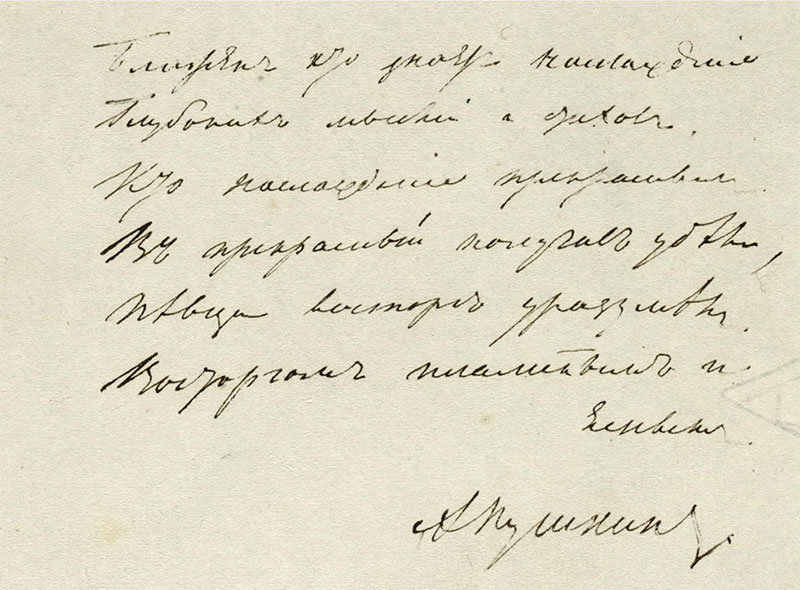 Блаженъ кто знаетъ наслажденіе
Глубокихъ мыслей и стиховъ.
Кто наслажденіе прекраснымъ
Въ прекрасный получилъ удѣлъ,
Пѣвца восторгъ уразумѣлъ
Восторгомъ пламеннымъ и
А Пушкинъ.